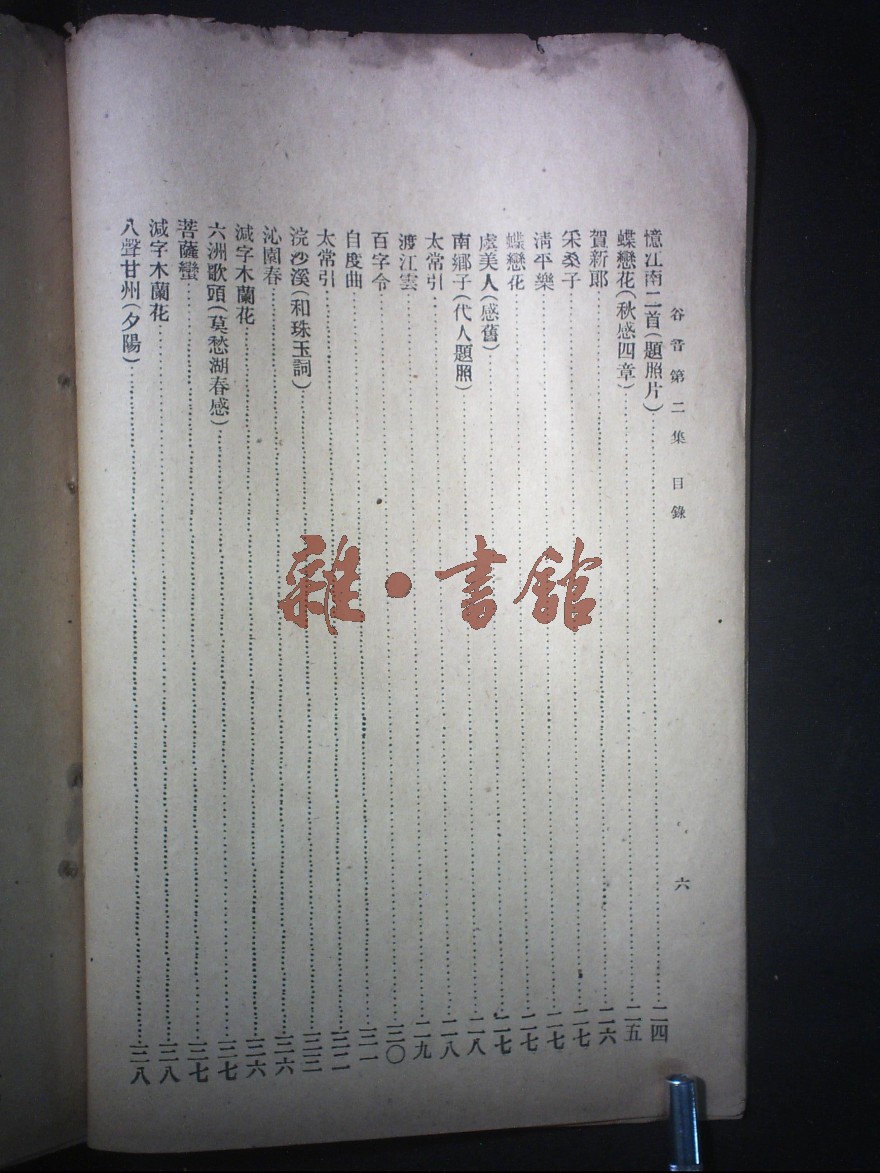 谷音第二集目錄 六
憶江南二首(題照片)……二四
蝶戀花(秋感四章)……二五
賀新郎……二六
采桑子……二七
清平樂……二七
蝶戀花……二七
虞美人(感舊)……二七
南鄉子(代人題照)……二八
太常引……二八
渡江雲……二九
百字令……三〇
自度曲……三一
太常引……三二
浣沙溪(和珠玉詞)……三三
沁園春……三六
減字木蘭花……三六
六洲歌頭(莫愁湖春感)……三七
菩薩蠻……三七
減字木蘭花……三八
八聲甘州(夕陽)……三八
雜·書館